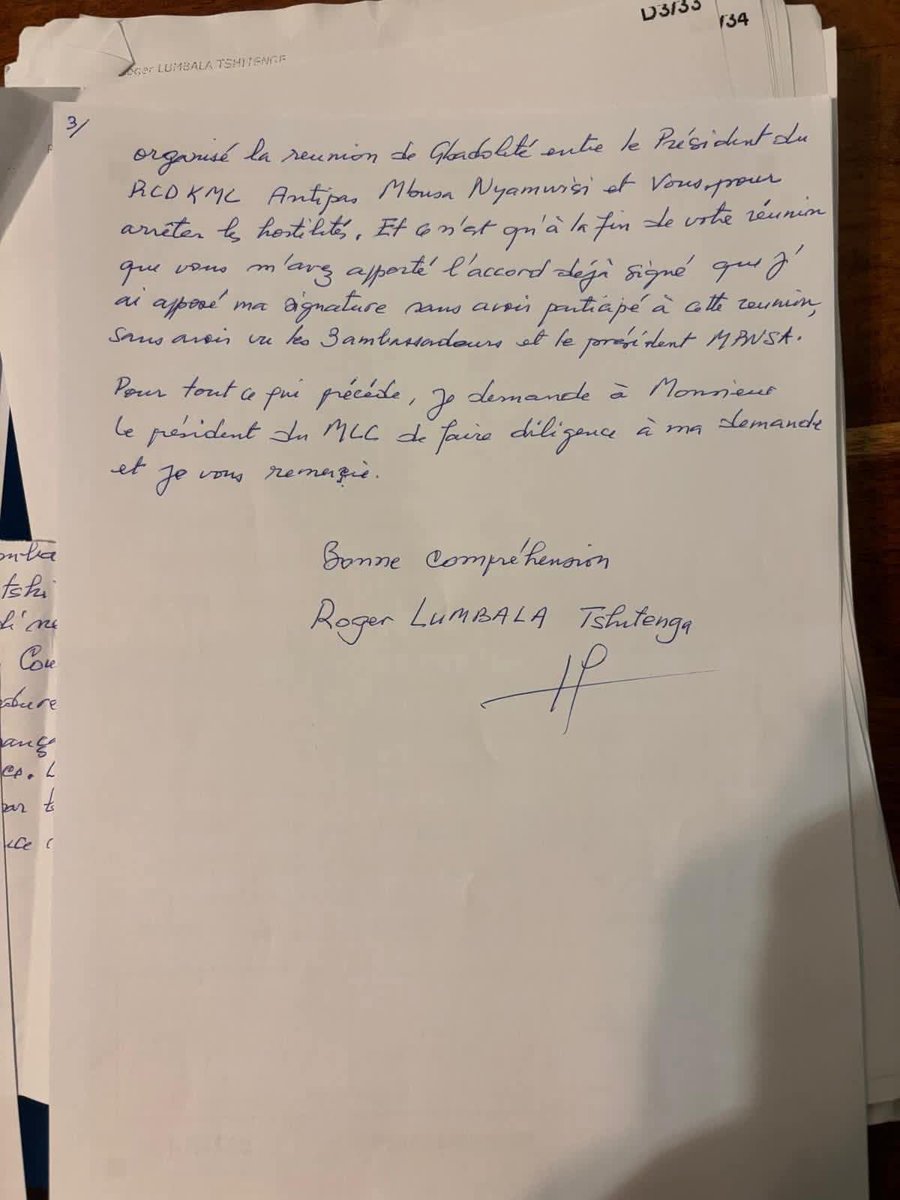 D3/33
/34
oger LUMBALA TSHITENGE
3/
organisé la reunion de Gbadolité entre le Président du
RCD KML Antipas Mbusa Nyamwisi et Vous, pour
arrêter les hostilités. Et ce n'est qu'à la fin de votre réunion
que vous m'avez apporté l'accord déjà signé que j'
ai apposé ma signature sans avoir participé à cette reunion,
sans avoir vu les 3 ambassadeurs et le président MBUSA.
Pour tout ce qui précède, je demande à Monsieur
le président du MLC de faire diligence à ma demande
et je vous remerçie.
Bonne compréhension
Roger LUMBALA Tshitenga
mba
tshi
Cou
ature
ce. L